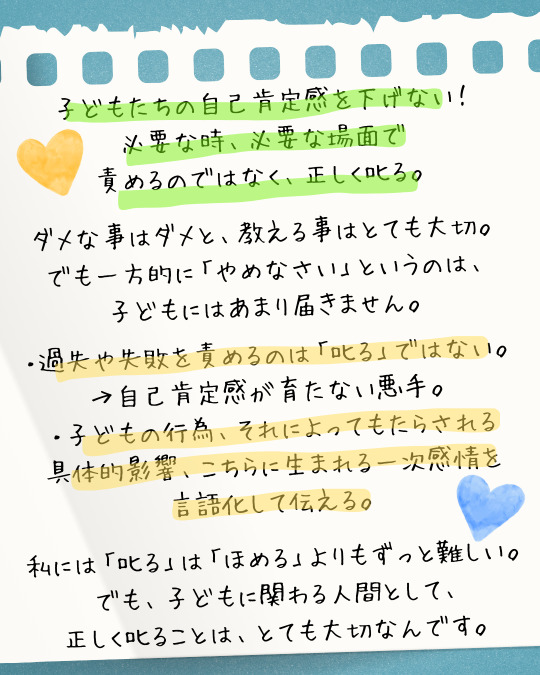 子どもたちの自己肯定感を下げない!
必要な時、必要な場面で
責めるのではなく、正しく叱る。
ダメな事はダメと、教える事はとても大切。
でも一方的に「やめなさい」というのは、
子どもにはあまり届きません。
・過失や失敗を責めるのは「叱る」ではない。
→自己肯定感が育たない悪手。
・子どもの行為、それによってもたらされる
具体的影響、こちらに生まれる一次感情を
言語化して伝える。
私には「叱る」は「ほめる」よりもずっと難しい。
でも、子どもに関わる人間として、
正しく叱ることは、とても大切なんです。